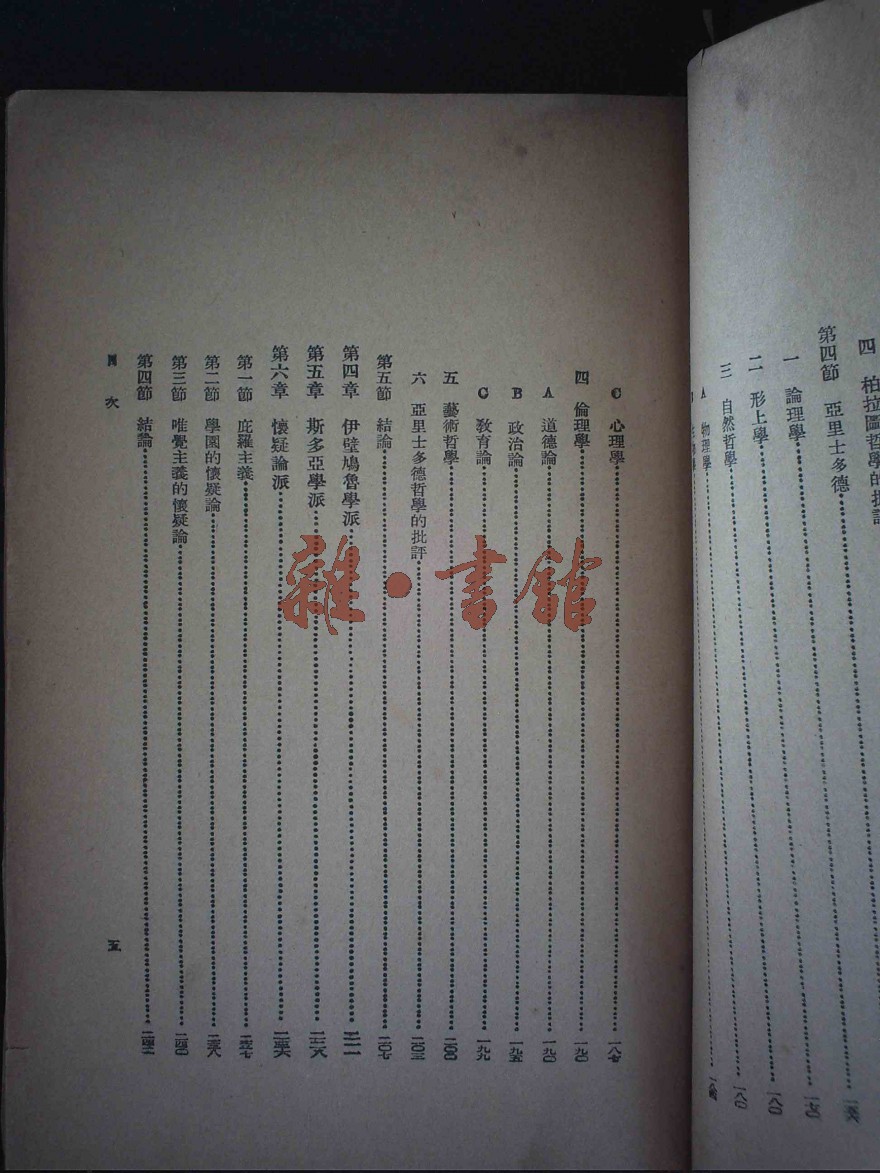 四 柏拉圖哲學的批
第四節 亞里士多德
一 論理學 一七〇
二 形上學 一八〇
三 自然哲學 一八〇
A 物理學
C 心理學 一八七
四 倫理學 一九〇
A 道德論 一九〇
B 政治論 一九五
C 教育論 一九九
五 藝術哲學 二〇〇
六 亞里士多德哲學的批評 二〇三
第五節 結論 二〇七
第四章 伊壁鳩魯學派 二一一
第五章 斯多亞學派
第六章 懷疑論派
第一節 庇羅主義
第二節 學園的懷疑論 二三八
第三節 唯覺主義的懷疑論 二四〇
第四節 結論
目次
五
雜·書館